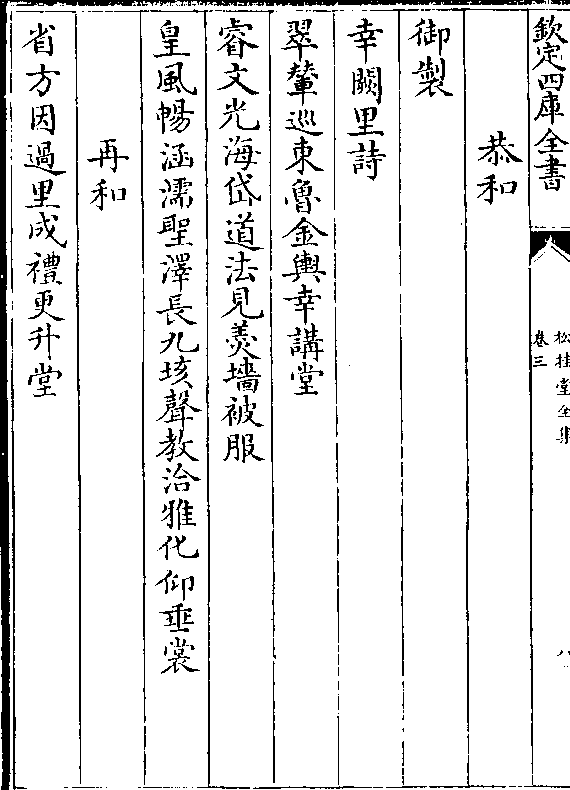 欽定四庫全書
松桂堂全集
卷三
八
恭和
御製
幸闕里詩
翠輦巡東魯金輿幸講堂
睿文光海岱道法見羮墻被服
皇風暢涵濡聖澤長九垓聲教洽雅化仰垂裳
再和
省方因過里成禮更升堂